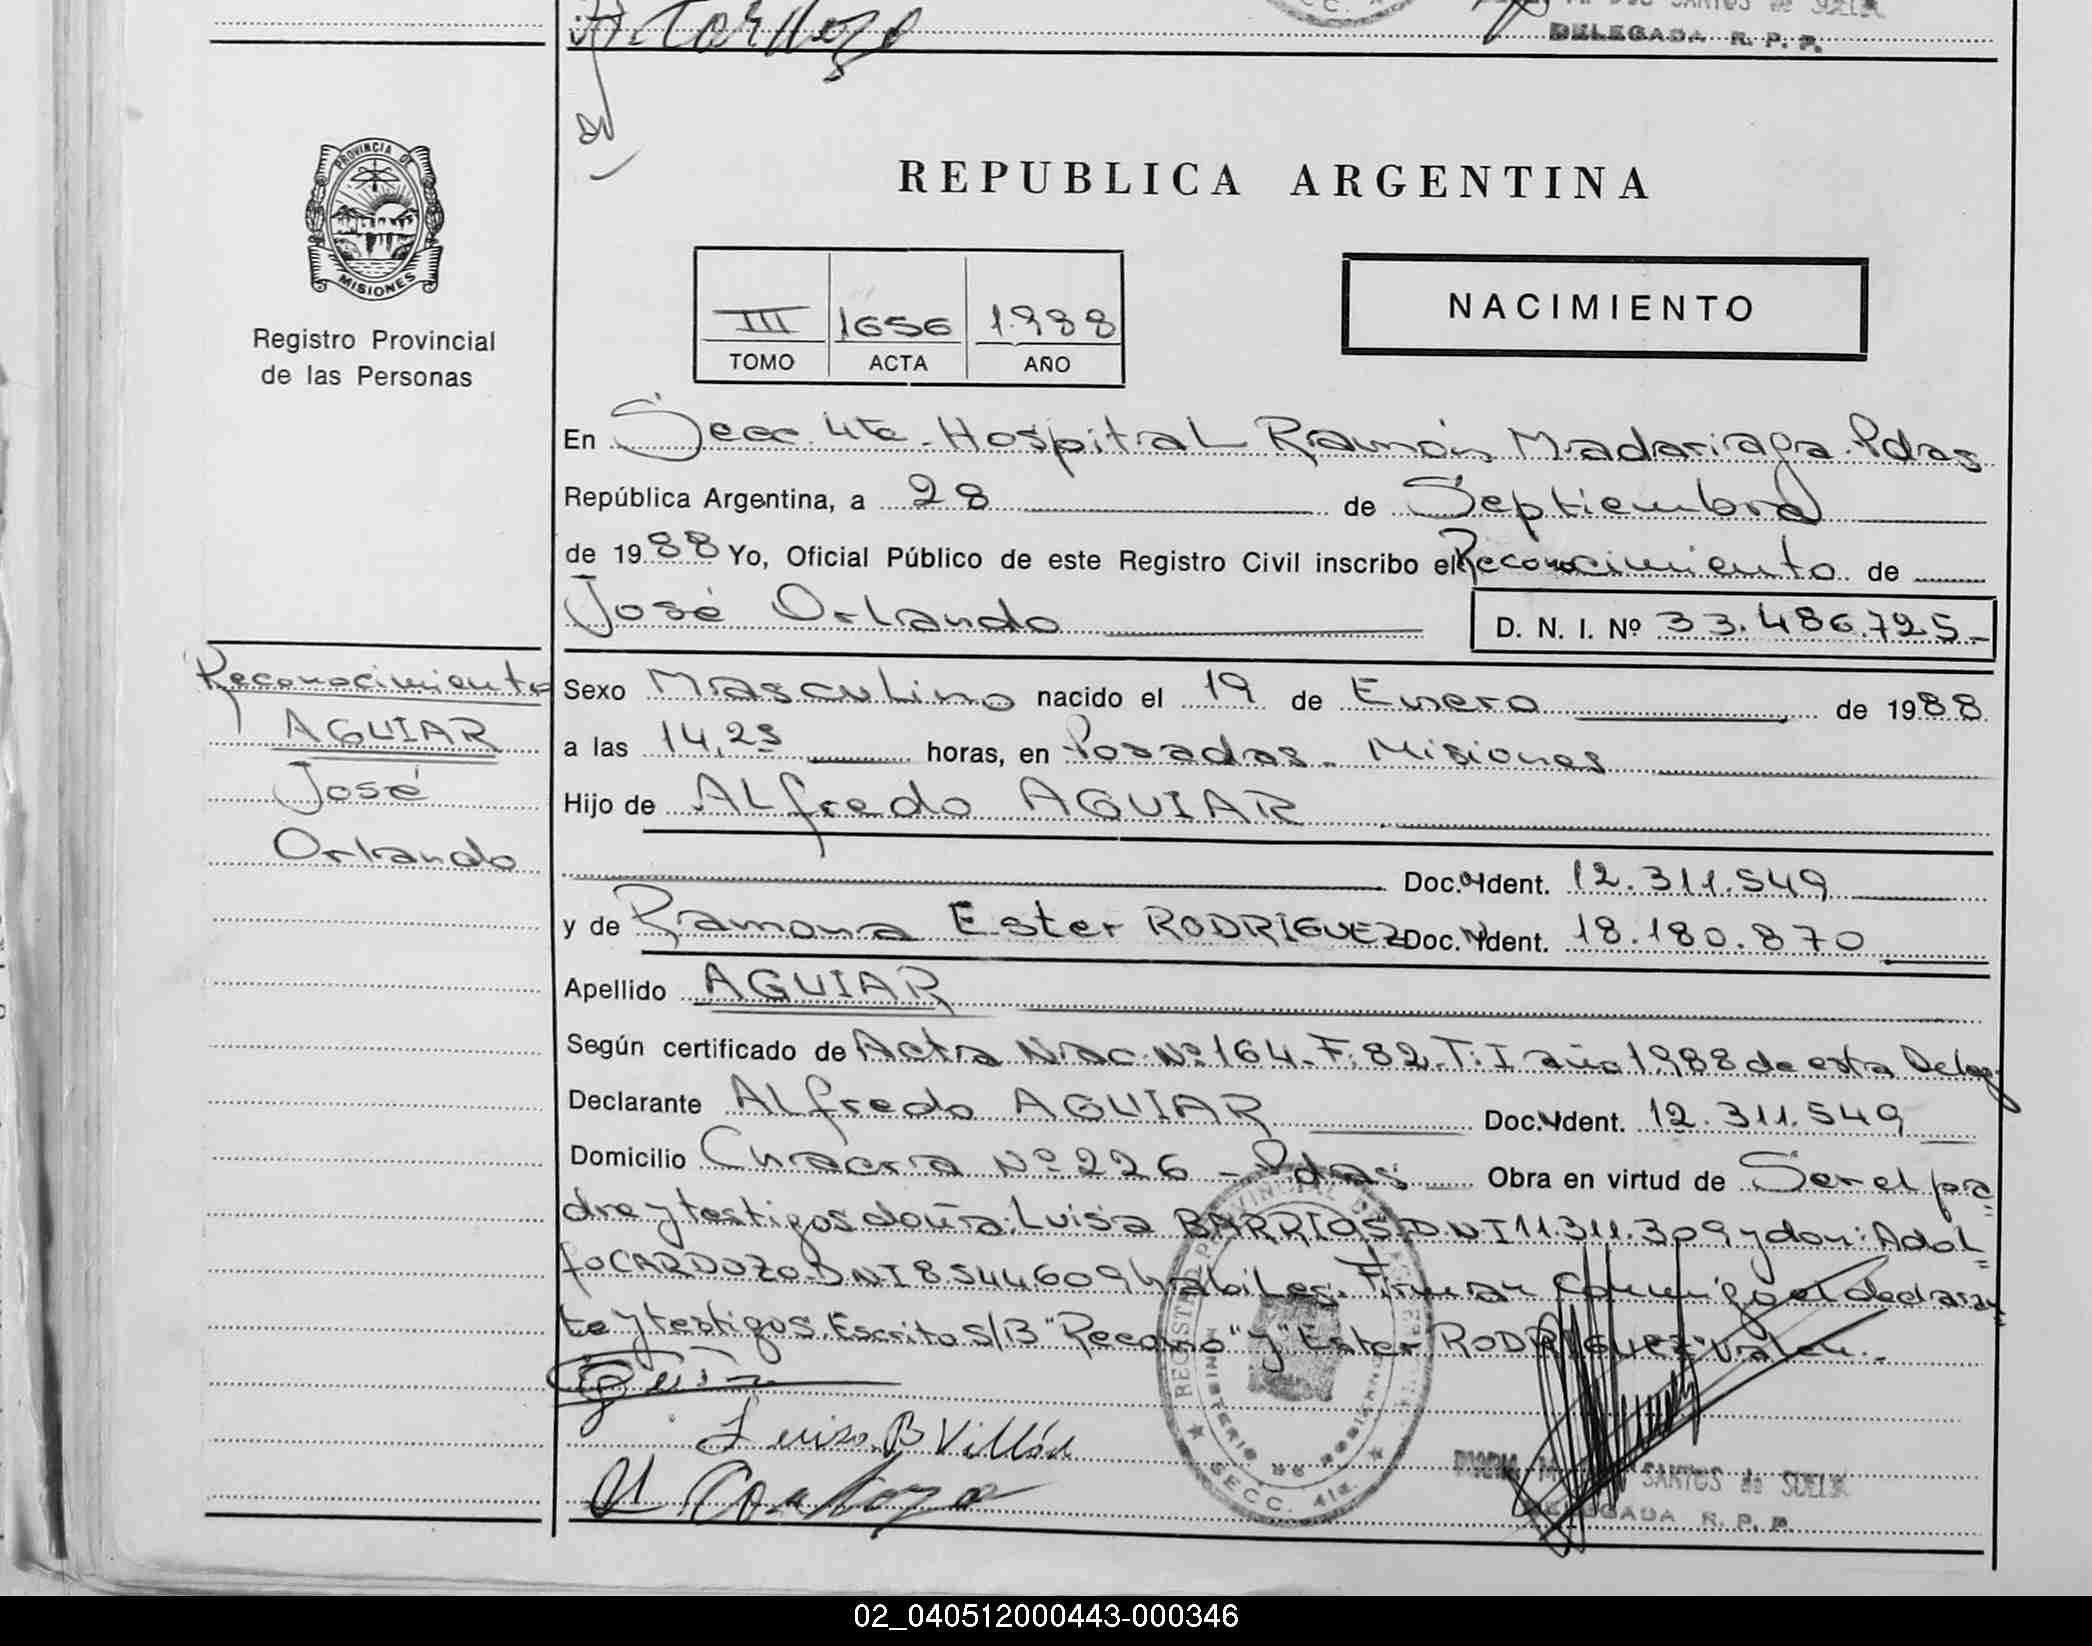 DOS SANTOS de SUELK
DELEGADA R. P. P.
PROVINCIA DE
MISIONES
Registro Provincial
de las Personas
REPUBLICA ARGENTINA
III 1656 1.988
TOMO ACTA AÑO
NACIMIENTO
En Secc. 4ta. Hospital Ramón Madariaga. Pdas
República Argentina, a 28 de Septiembre
de 1988 Yo, Oficial Público de este Registro Civil inscribo el Reconocimiento de
José Orlando D. N. I. Nº 33.486.725-
Reconocimiento
AGUIAR
José
Orlando
Sexo Masculino nacido el 19 de Enero de 1988
a las 14,25 horas, en Posadas - Misiones
Hijo de Alfredo AGUIAR
Doc. Ident. 12.311.549
y de Ramona Ester RODRIGUEZ Doc. Ident. 18.180.870
Apellido AGUIAR
Según certificado de Acta Nac. Nº 164. F. 82. T. I año 1.988 de esta Deleg
Declarante Alfredo AGUIAR Doc. Ident. 12.311.549
Domicilio Chacra Nº 226 - Pdas Obra en virtud de Ser el pa
dre y testigos doña: Luisa BARRIOS D.N.I 11.311.309 y don: Adol
fo CARDOZO D.N.I 8.544.609 hábiles. Firman conmigo el declaran
te y testigos. Escrito S/B "Recono" y "Ester RODRIGUEZ" Valen.
REGISTRO PROVINCIAL DE LAS PERSONAS
MINISTERIO DE GOBIERNO
SECC. 4ta.
Luisa B Villán
SANTOS de SUELK
DELEGADA R. P. P.
02_040512000443-000346